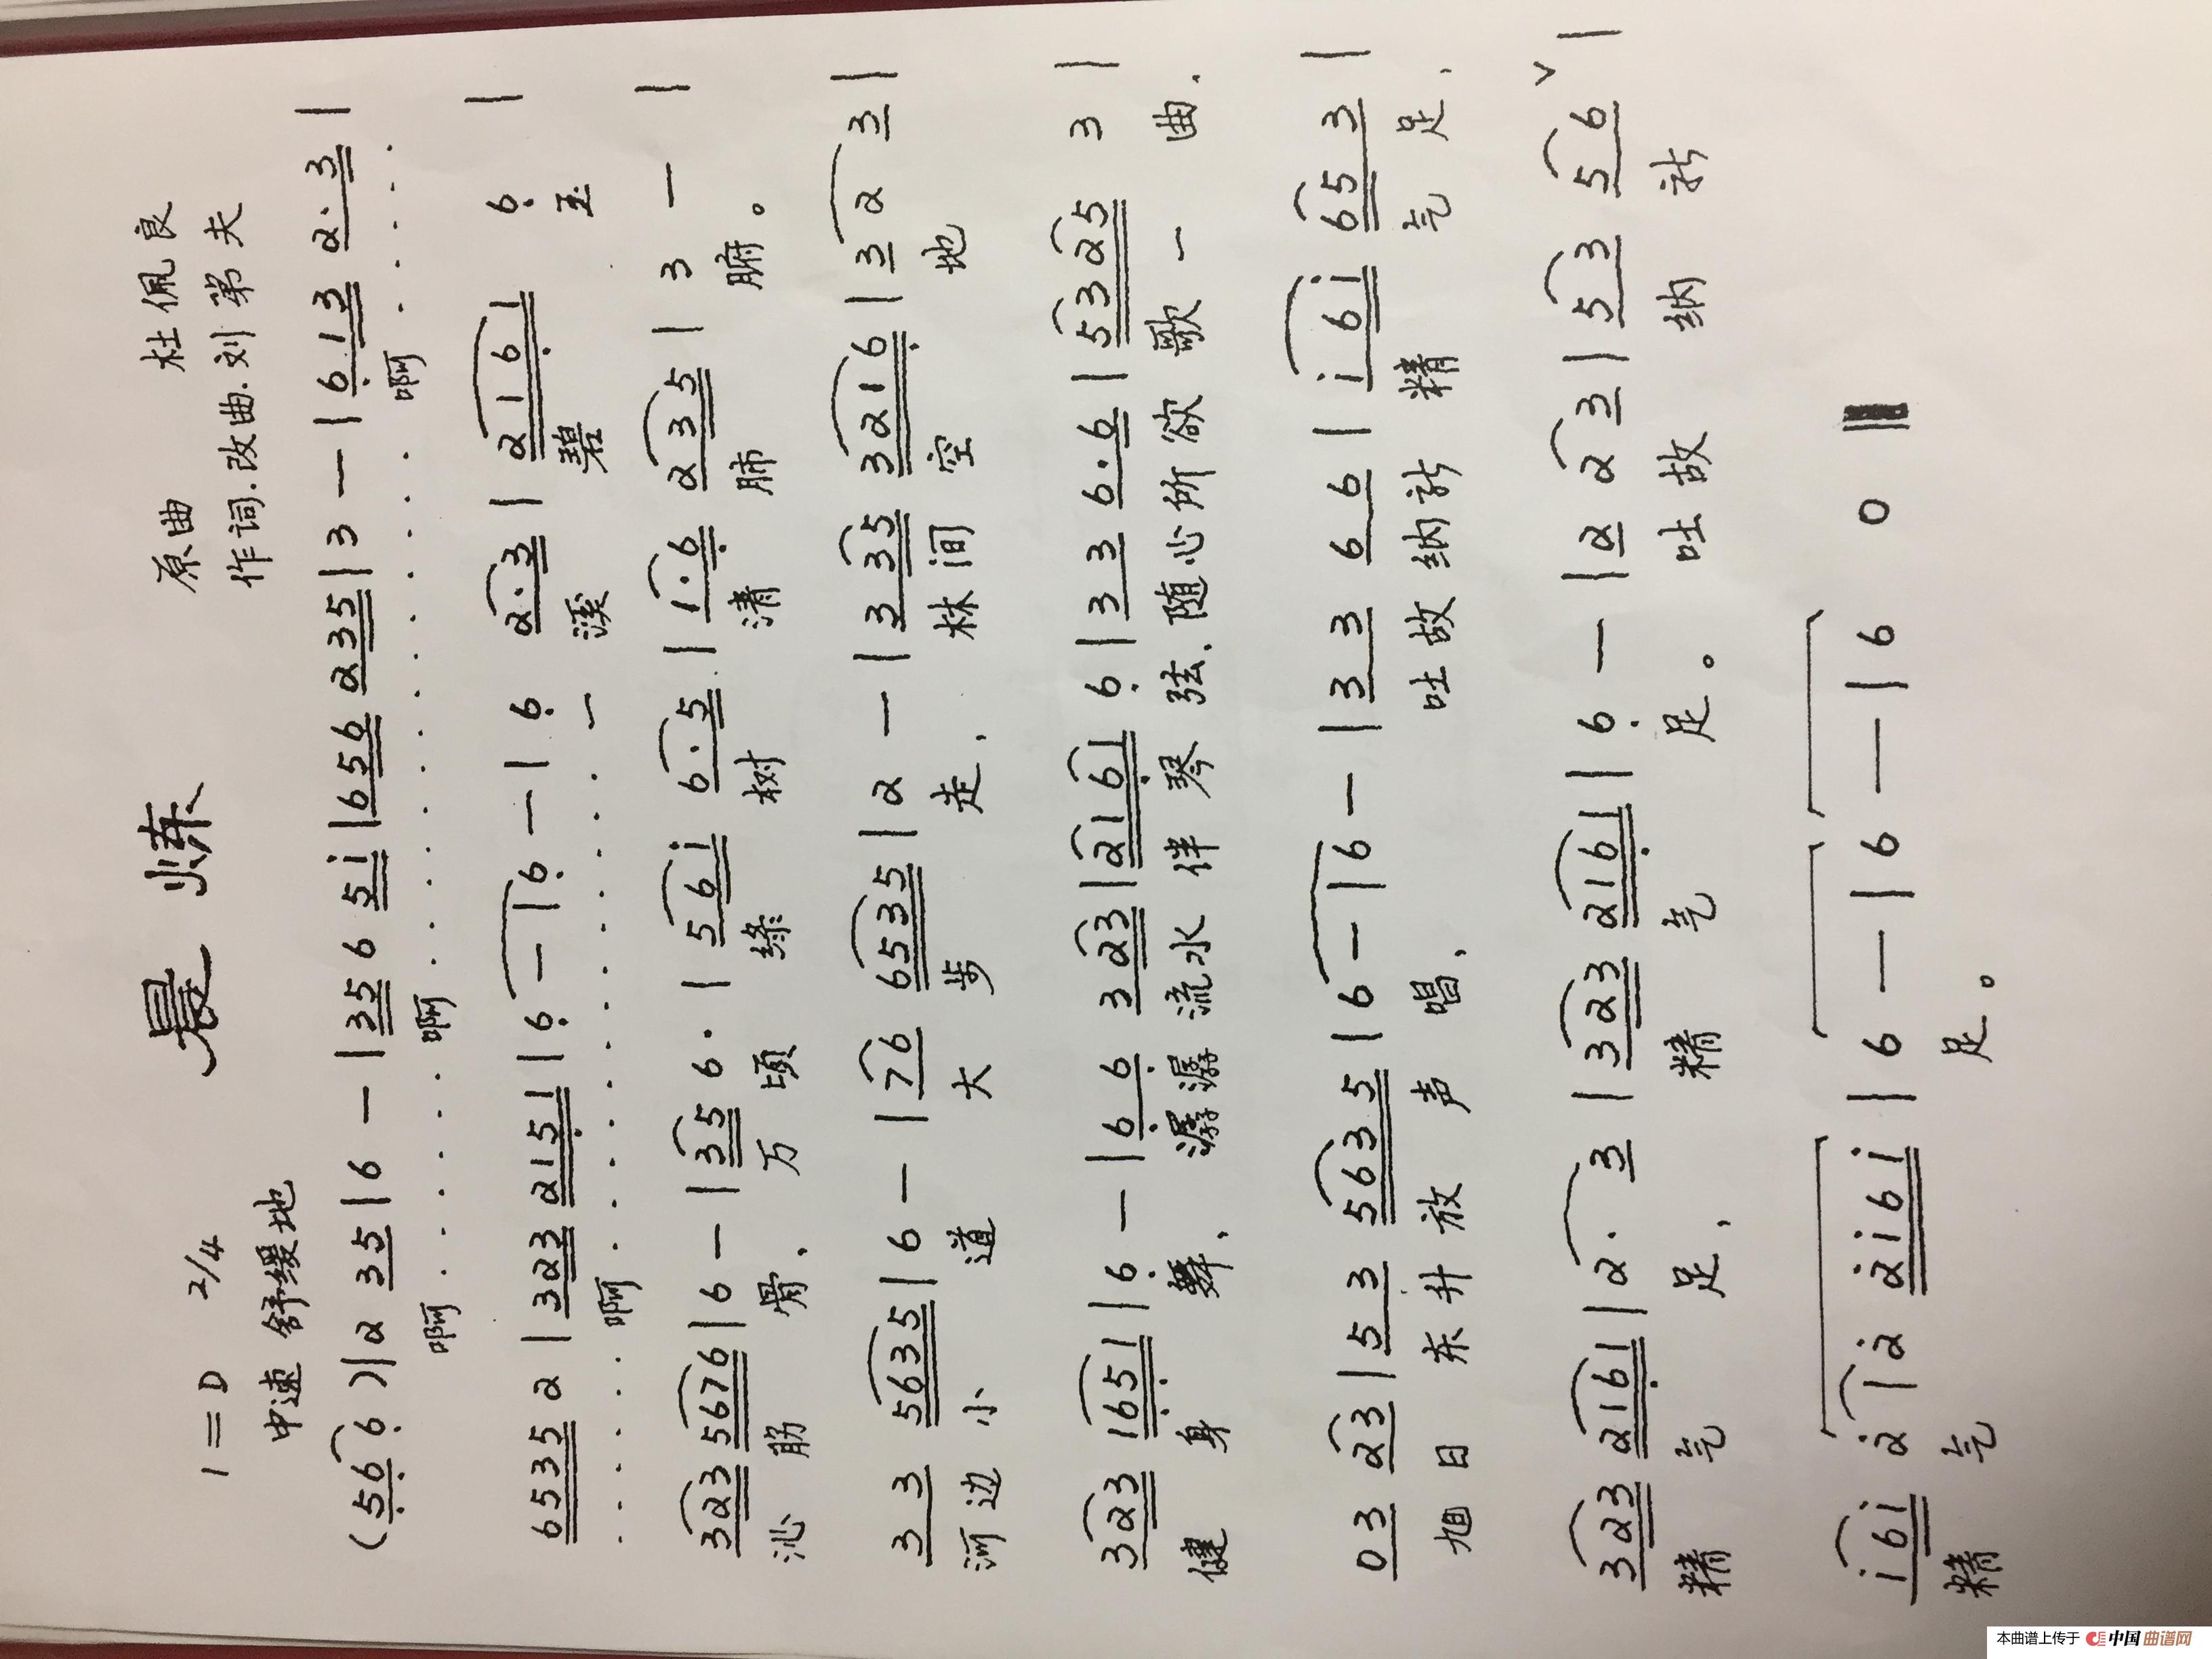 晨 炼
原曲 杜佩良
1=D 2/4
作词.改曲.刘第夫
中速 舒缓地
(5 6 6)|2 3 5|6 —|3 5 6 5 i|6 5 6 2 3 5|3 —|6 1 3 2·3|
啊 . . . . . . 啊 . . . . . . . . . . . . 啊 . . . .
6 5 3 5 2|3 2 3 2 1 5 1|6 —|6 —|6 2·3|2 1 6 1 6|
. . . . . 啊 . . . . . . . 一 溪 碧 玉
3 2 3 5 6 7 6|6 —|3 5 6·|5 6 i 6·5|1·6 2 3 5|3 —|
沁 筋 骨、 万 顷 绿 树 清 肺 腑。
3 3 5 6 3 5|6 —|7 6 6 5 3 5|2 —|3 3 5 3 2 1 6|3 2 3|
河边 小 道 大 步 走, 林间 空 地
3 2 3 1 6 5 1|6 —|6 6 3 2 3|2 1 6 1 6|3 3 6·6|5 3 2 5 3|
健 身 舞、 潺潺流水 伴 琴 弦、随心所欲 歌 一 曲.
0 3 2 3|5 3 5 6 3 5|6 —|6 —|3 3 6 6|i 6 i 6 5 3|
旭 日 东 升 放 声 唱、 吐 故 纳 新 精 气 足、
3 2 3 2 1 6 1|2· 3|3 2 3 2 1 6 1|6 —|2 2 3|5 3 5 6 ∨|
精 气 足, 精 气 足。 吐 故 纳 新
i 6 i 2|2 2 i 6 i|6 —|6 —|6 0‖
精 气 足。
本曲谱上传于 中国曲谱网